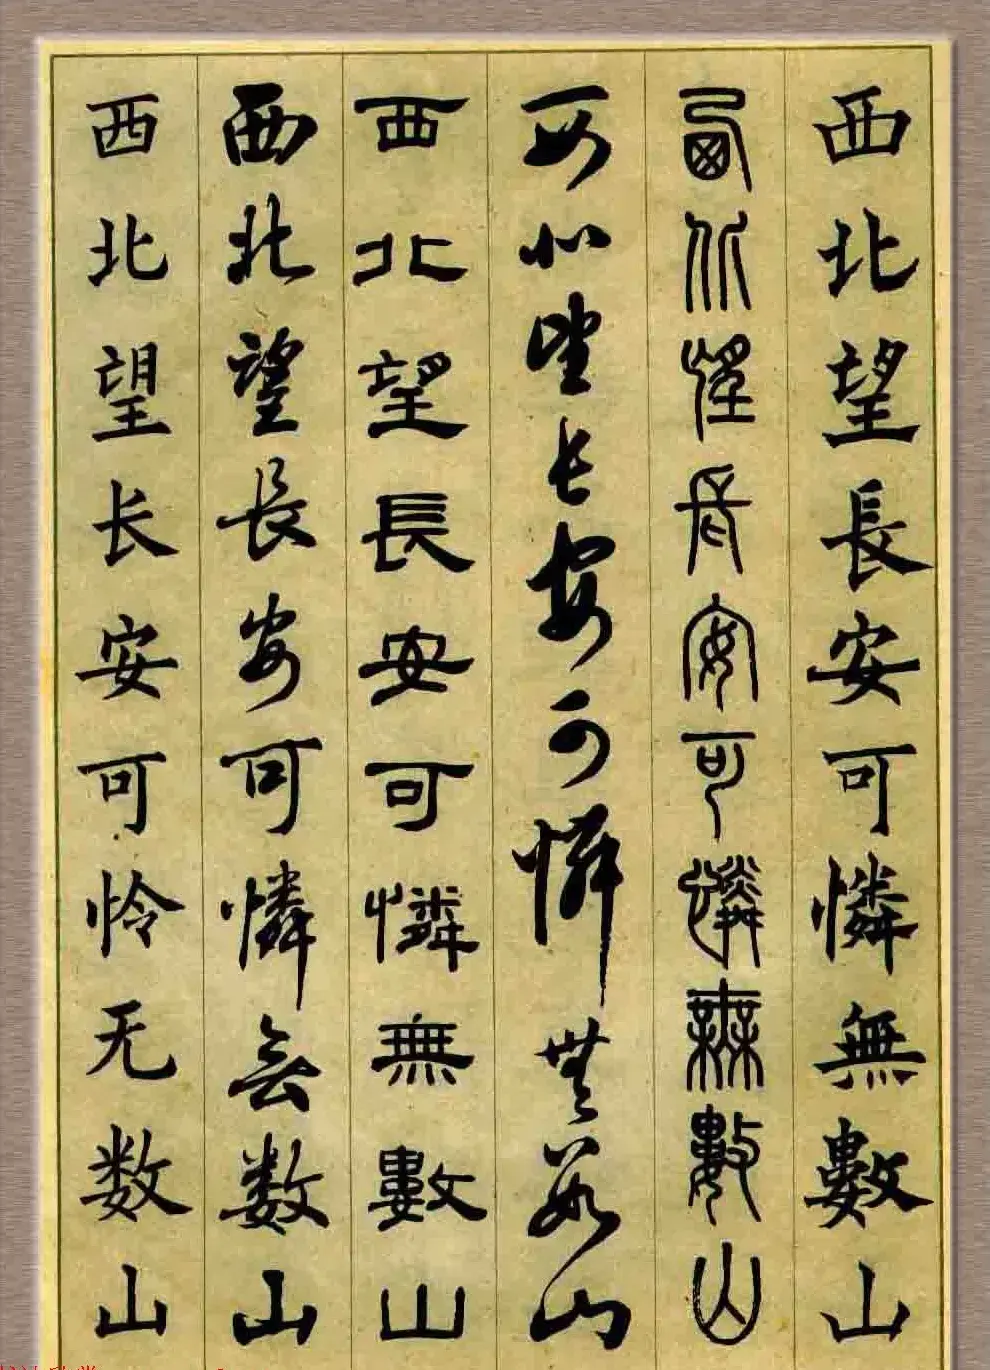 西北望長安可憐無數山
西北望長安可憐無數山
西北望長安可憐無數山
西北望長安可憐無數山
西北望長安可憐無数山
西北望长安可怜无数山